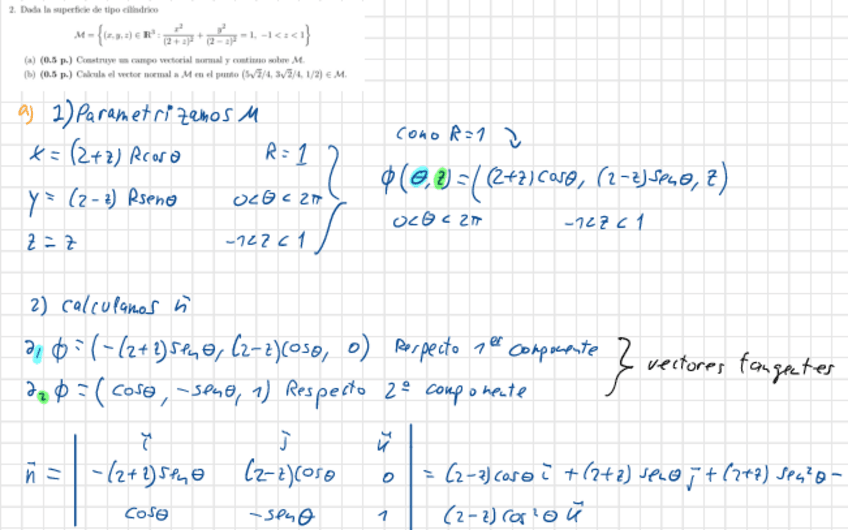 2. Dada la superficie de tipo cilíndrico
M = {(x, y, z) ∈ R³ : x²/(2 + z)² + y²/(2 − z)² = 1, −1 < z < 1}
(a) (0.5 p.) Construye un campo vectorial normal y continuo sobre M.
(b) (0.5 p.) Calcula el vector normal a M en el punto (5√2/4, 3√2/4, 1/2) ∈ M.
a) 1) Parametrizamos M
x = (2+z) R cosθ R = 1
y = (2-z) R senθ 0<θ<2π
z = z -1<z<1
Como R=1
ϕ(θ, z) = ((2+z) cosθ, (2-z) senθ, z)
0<θ<2π -1<z<1
2) calculamos n⃗
∂₁ ϕ = (-(2+z) senθ, (2-z) cosθ, 0) Respecto 1er componente
∂₂ ϕ = (cosθ, -senθ, 1) Respecto 2ª componente
vectores tangentes
i⃗ j⃗ k⃗
n⃗ = | -(2+z) senθ (2-z) cosθ 0 | = (2-z) cosθ i⃗ + (2+z) senθ j⃗ + (2+z) sen²θ -
cosθ -senθ 1 (2-z) cos²θ k⃗